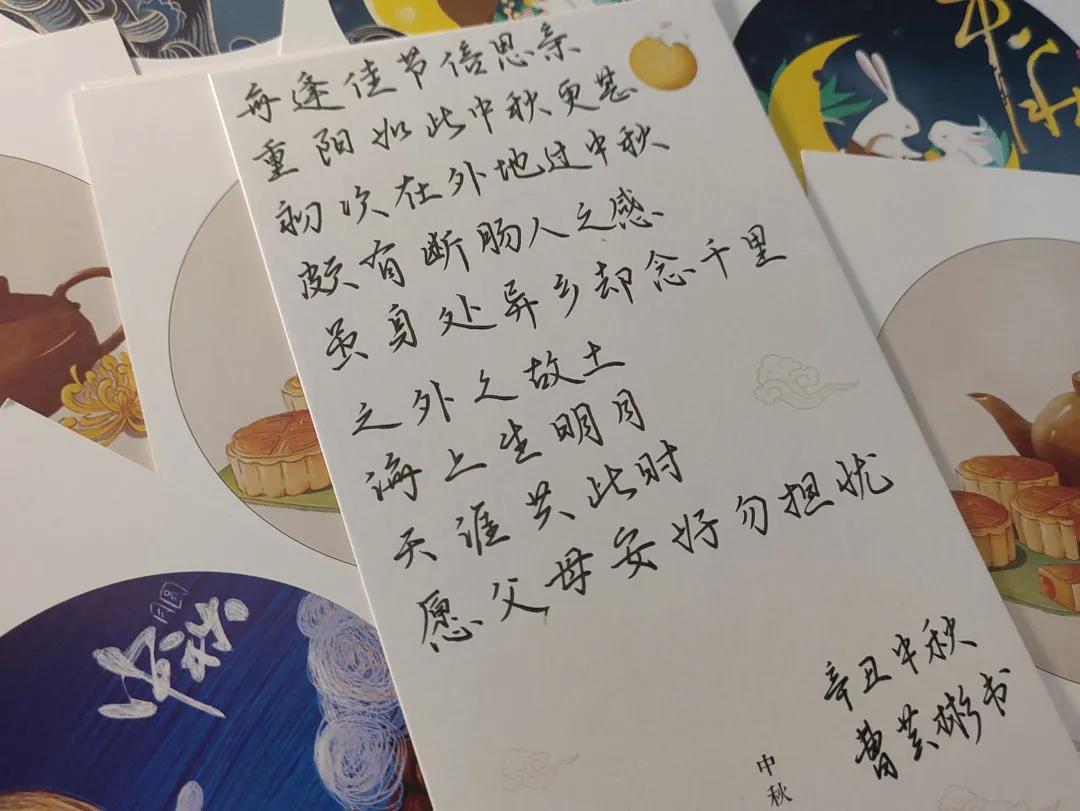 每逢佳节倍思亲
重阳如此中秋更甚
初次在外地过中秋
颇有断肠人之感
虽身处异乡却念千里
之外之故土
海上生明月
天涯共此时
愿父母安好勿担忧
辛丑中秋
曹芸彬书
中秋
中秋